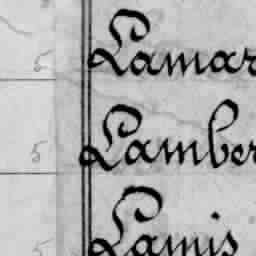 5 Lamar
5 Lamber
5 Lamis